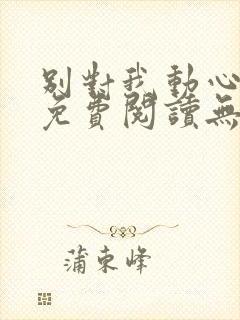 別對我動心
免費閱讀無
蒲東峰